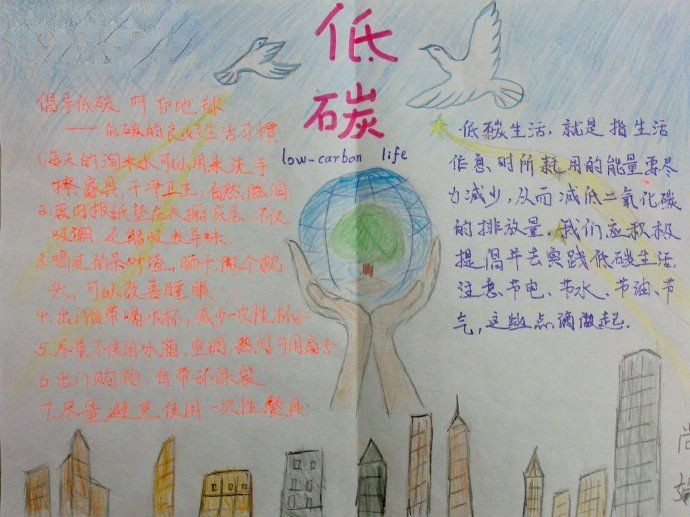 低
碳
low-carbon life
倡导低碳 呵护地球
——低碳的良好生活习惯
1.每天的淘米水可以用来洗手
擦家具,干净卫生,自然滋润.
2.废旧报纸垫在衣橱底层,不仅
吸潮,还能吸收异味.
3.喝过的茶叶渣,晒干,做个枕
头,可以改善睡眠
4.出门自带喝水杯,减少一次性杯子
5.尽量不使用冰箱,空调,热时可用扇子
6.出门购物,自带环保袋
7.尽量避免使用一次性餐具.
低碳生活,就是指生活
作息时所耗用的能量要尽
力减少,从而减低二氧化碳
的排放量.我们应积极
提倡并去实践低碳生活.
注意节电、节水、节油、节
气,这些点滴做起.